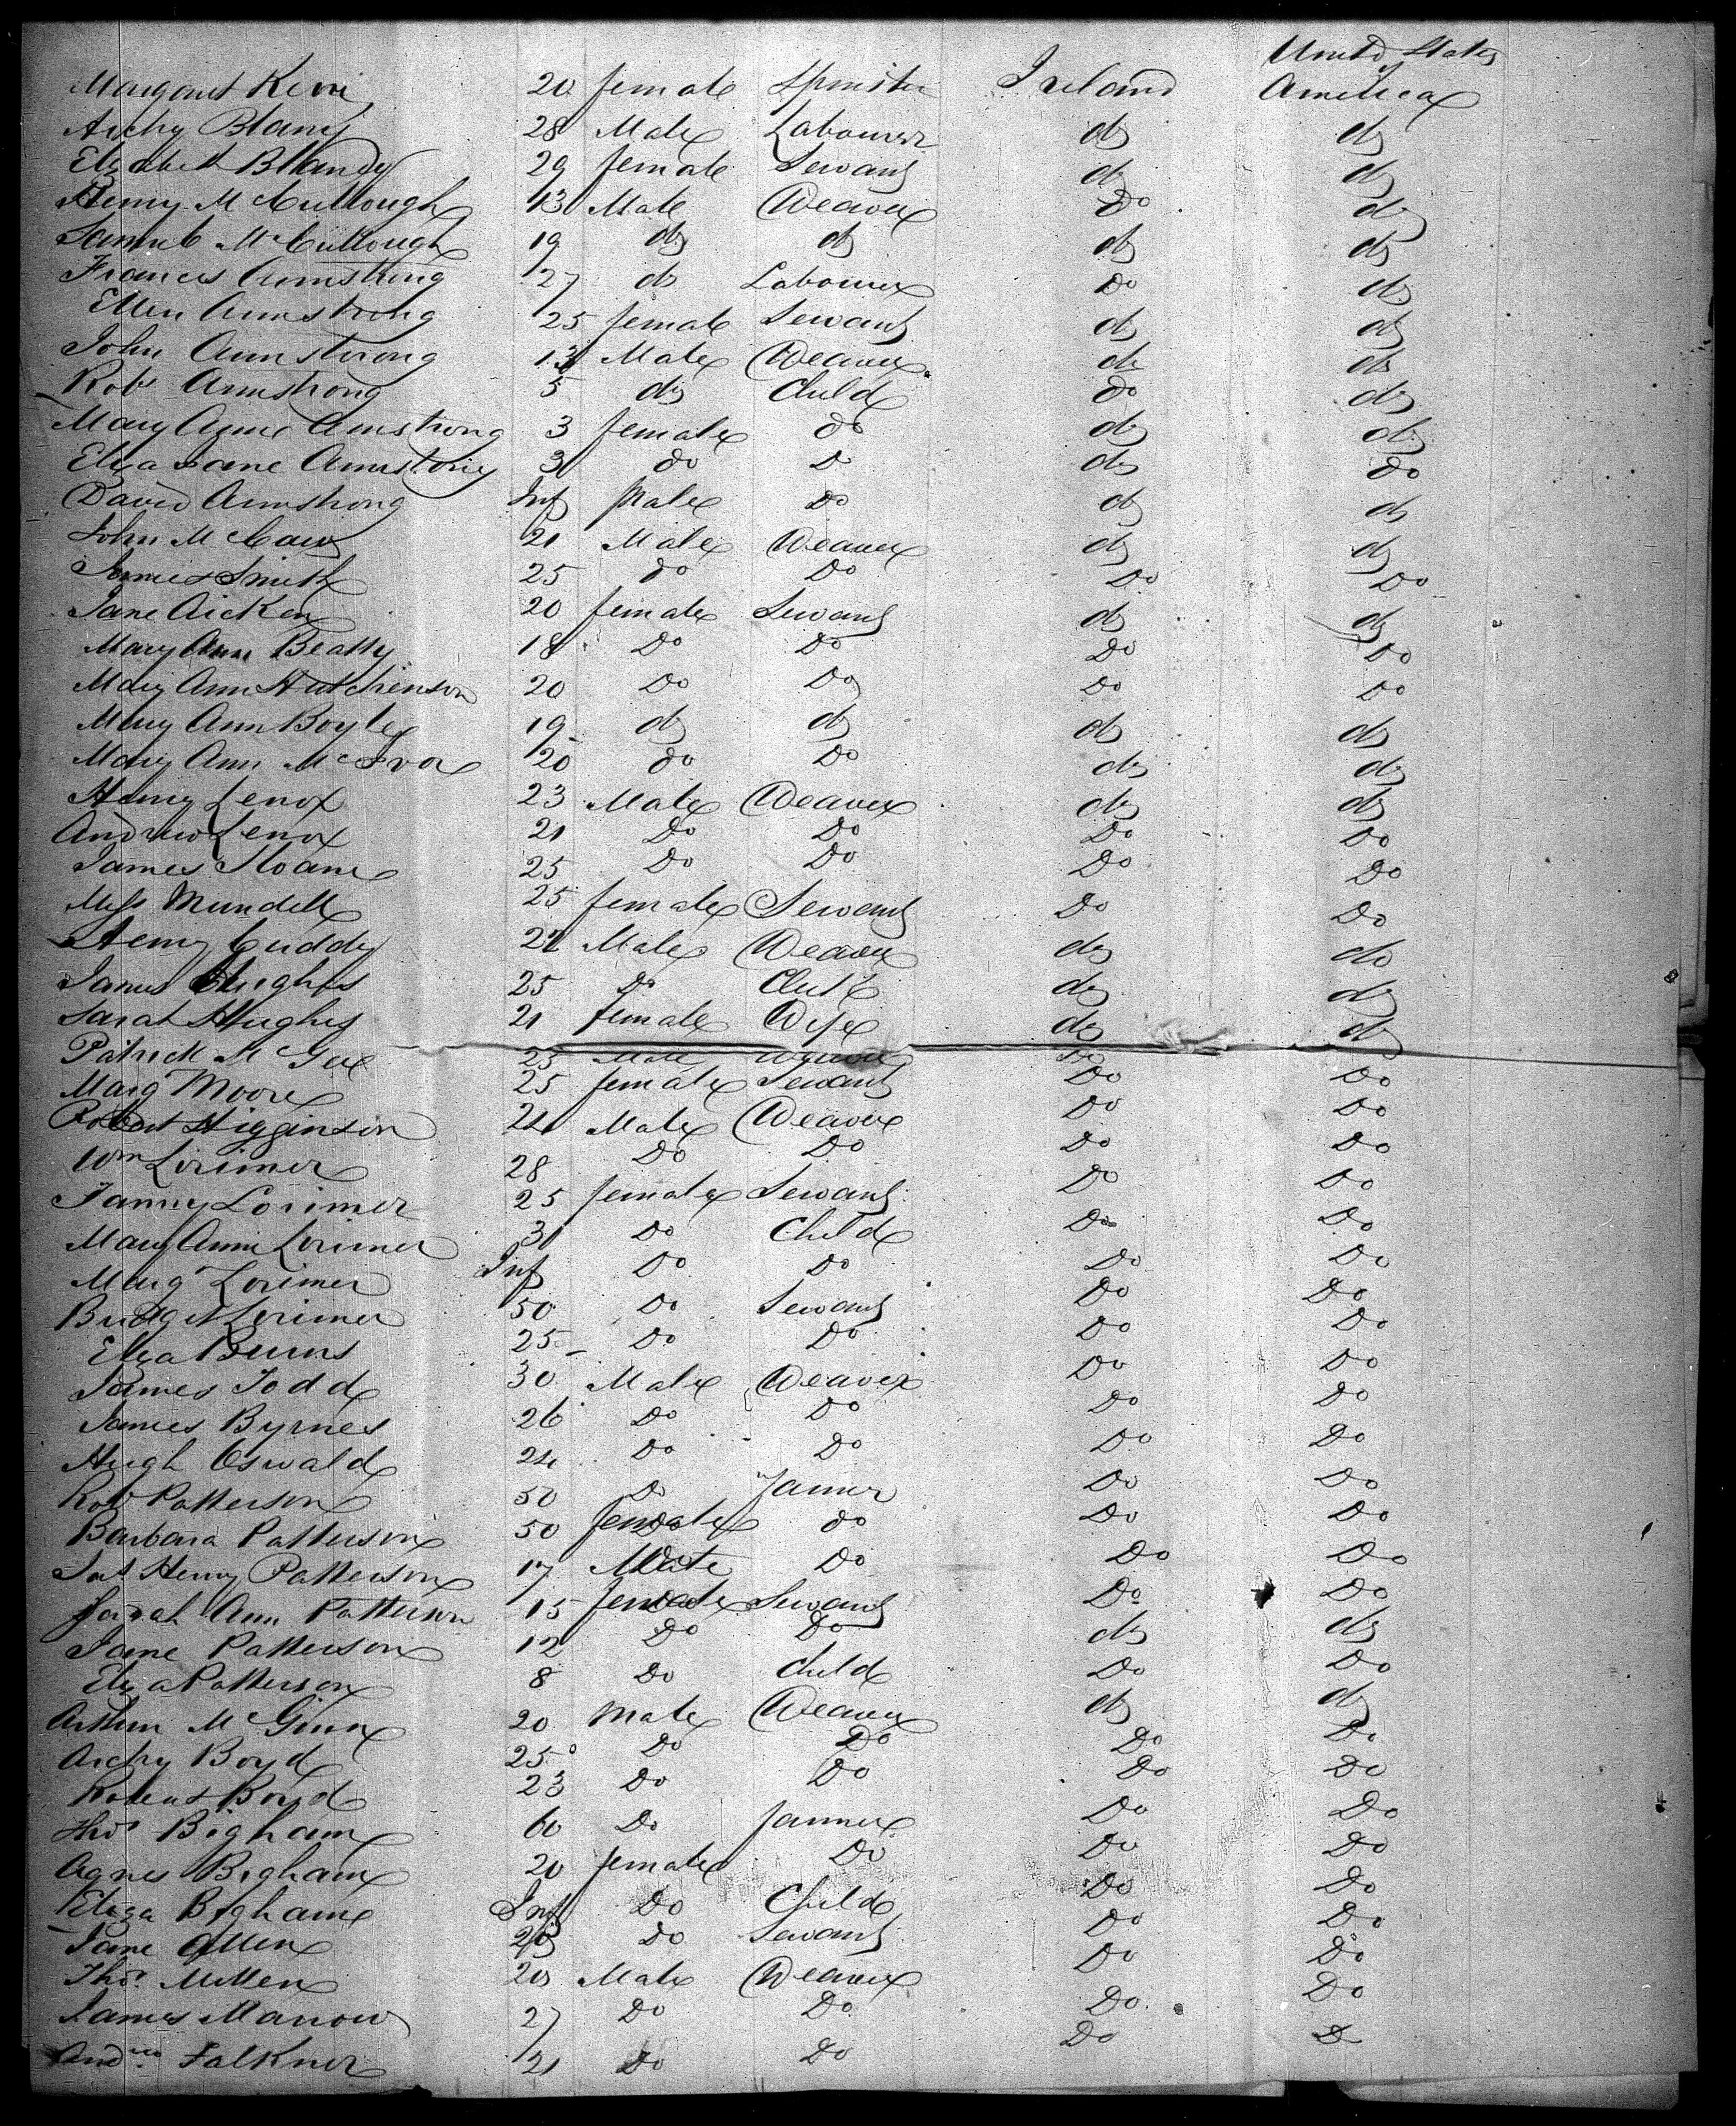 United States
Margaret Kerr 20 female Spinster Ireland America
Archy Blany 28 Male Labourer do do
Elizabeth Blandy 29 female Servant do do
Henry McCullough 13 Male Weaver Do do
Samuel McCullough 19 do do do do
Frances Armstrong 27 do Labourer Do do
Ellen Armstrong 25 female Servant do do
John Armstrong 13 Male Weaver do do
Robt Armstrong 5 do Child do do
Mary Anne Armstrong 3 female do do do
Eliza Jane Armstrong 3 do D do do
David Armstrong Inf Male Do do do
John McCaw 21 Male Weaver do do
James Smith 25 do Do Do Do
Jane Aicken 20 female Servant do do
Mary Ann Beatty 18 Do Do Do Do
Mary Ann Hutchenson 20 Do Do Do Do
Mary Ann Boyle 19 do do do do
Mary Ann 20 do Do do do
Henry Lenox 23 Male Weaver do do
Andrew Lenox 21 Do Do Do Do
James Sloane 25 Do Do Do Do
Miss Mundell 25 female Servant Do Do
Henry Cuddy Male Weaver do do
James Hughes 25 Do do do
Sarah Hughes 21 female Wife do do
Patrick McGee 23 Male Weaver Do
Marg Moore 25 female Servant Do Do
Robert Higginson 24 Male Weaver Do Do
Wm Lorimer 28 Do Do Do Do
Fanny Lorimer 25 female Servant Do Do
Mary Ann Lorimer 3 Do Child Do Do
Marg Lorimer Inf Do Do Do Do
Bridget Lorimer 50 Do Servant Do Do
Eliza Burns 25 Do Do Do Do
James Todd 30 Male Weaver Do Do
James Byrnes 26 Do Do Do Do
Hugh Oswald 24 Do Do Do Do
Robt Patterson 50 Do Farmer Do Do
Barbara Patterson 50 female do Do Do
Jas Henry Patterson 17 Male Do Do Do
Sarah Ann Patterson 15 female Servant Do Do
Jane Patterson 12 Do Do do do
Eliza Patterson 8 Do Child Do Do
Arthur McGinn 20 Male Weaver do do
Archy Boyd 25 Do Do Do Do
Robert Boyd 23 Do Do Do Do
Thos Bigham 60 Do farmer Do Do
Agnes Bigham 20 female Do Do Do
Eliza Bigham Inf Do Child Do Do
Jane Allen Do Servant Do Do
Thos Millen 20 Male Weaver Do Do
James Marrow 27 Do Do Do Do
Andrew Falkner 21 Do Do Do D